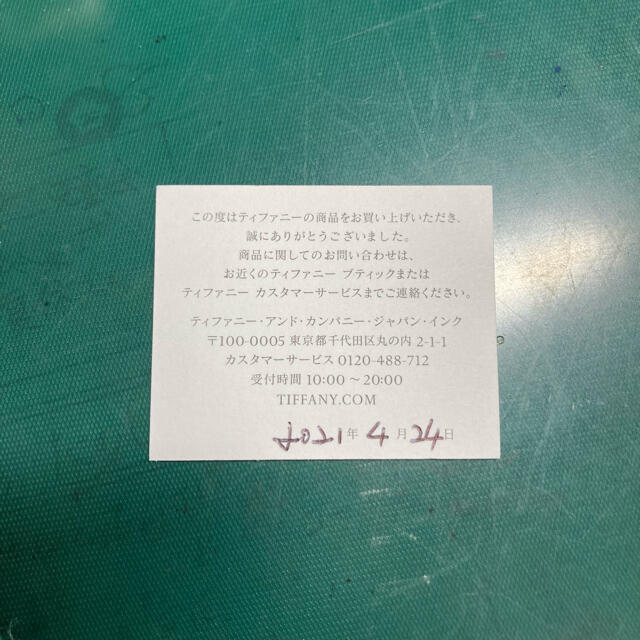 この度はティファニーの商品をお買い上げいただき、
誠にありがとうございました。
商品に関してのお問い合わせは、
お近くのティファニー ブティックまたは
ティファニー カスタマーサービスまでご連絡ください。
ティファニー・アンド・カンパニー・ジャパン・インク
〒100-0005 東京都千代田区丸の内 2-1-1
カスタマーサービス 0120-488-712
受付時間 10:00 ～ 20:00
TIFFANY.COM
2021年 4月24日